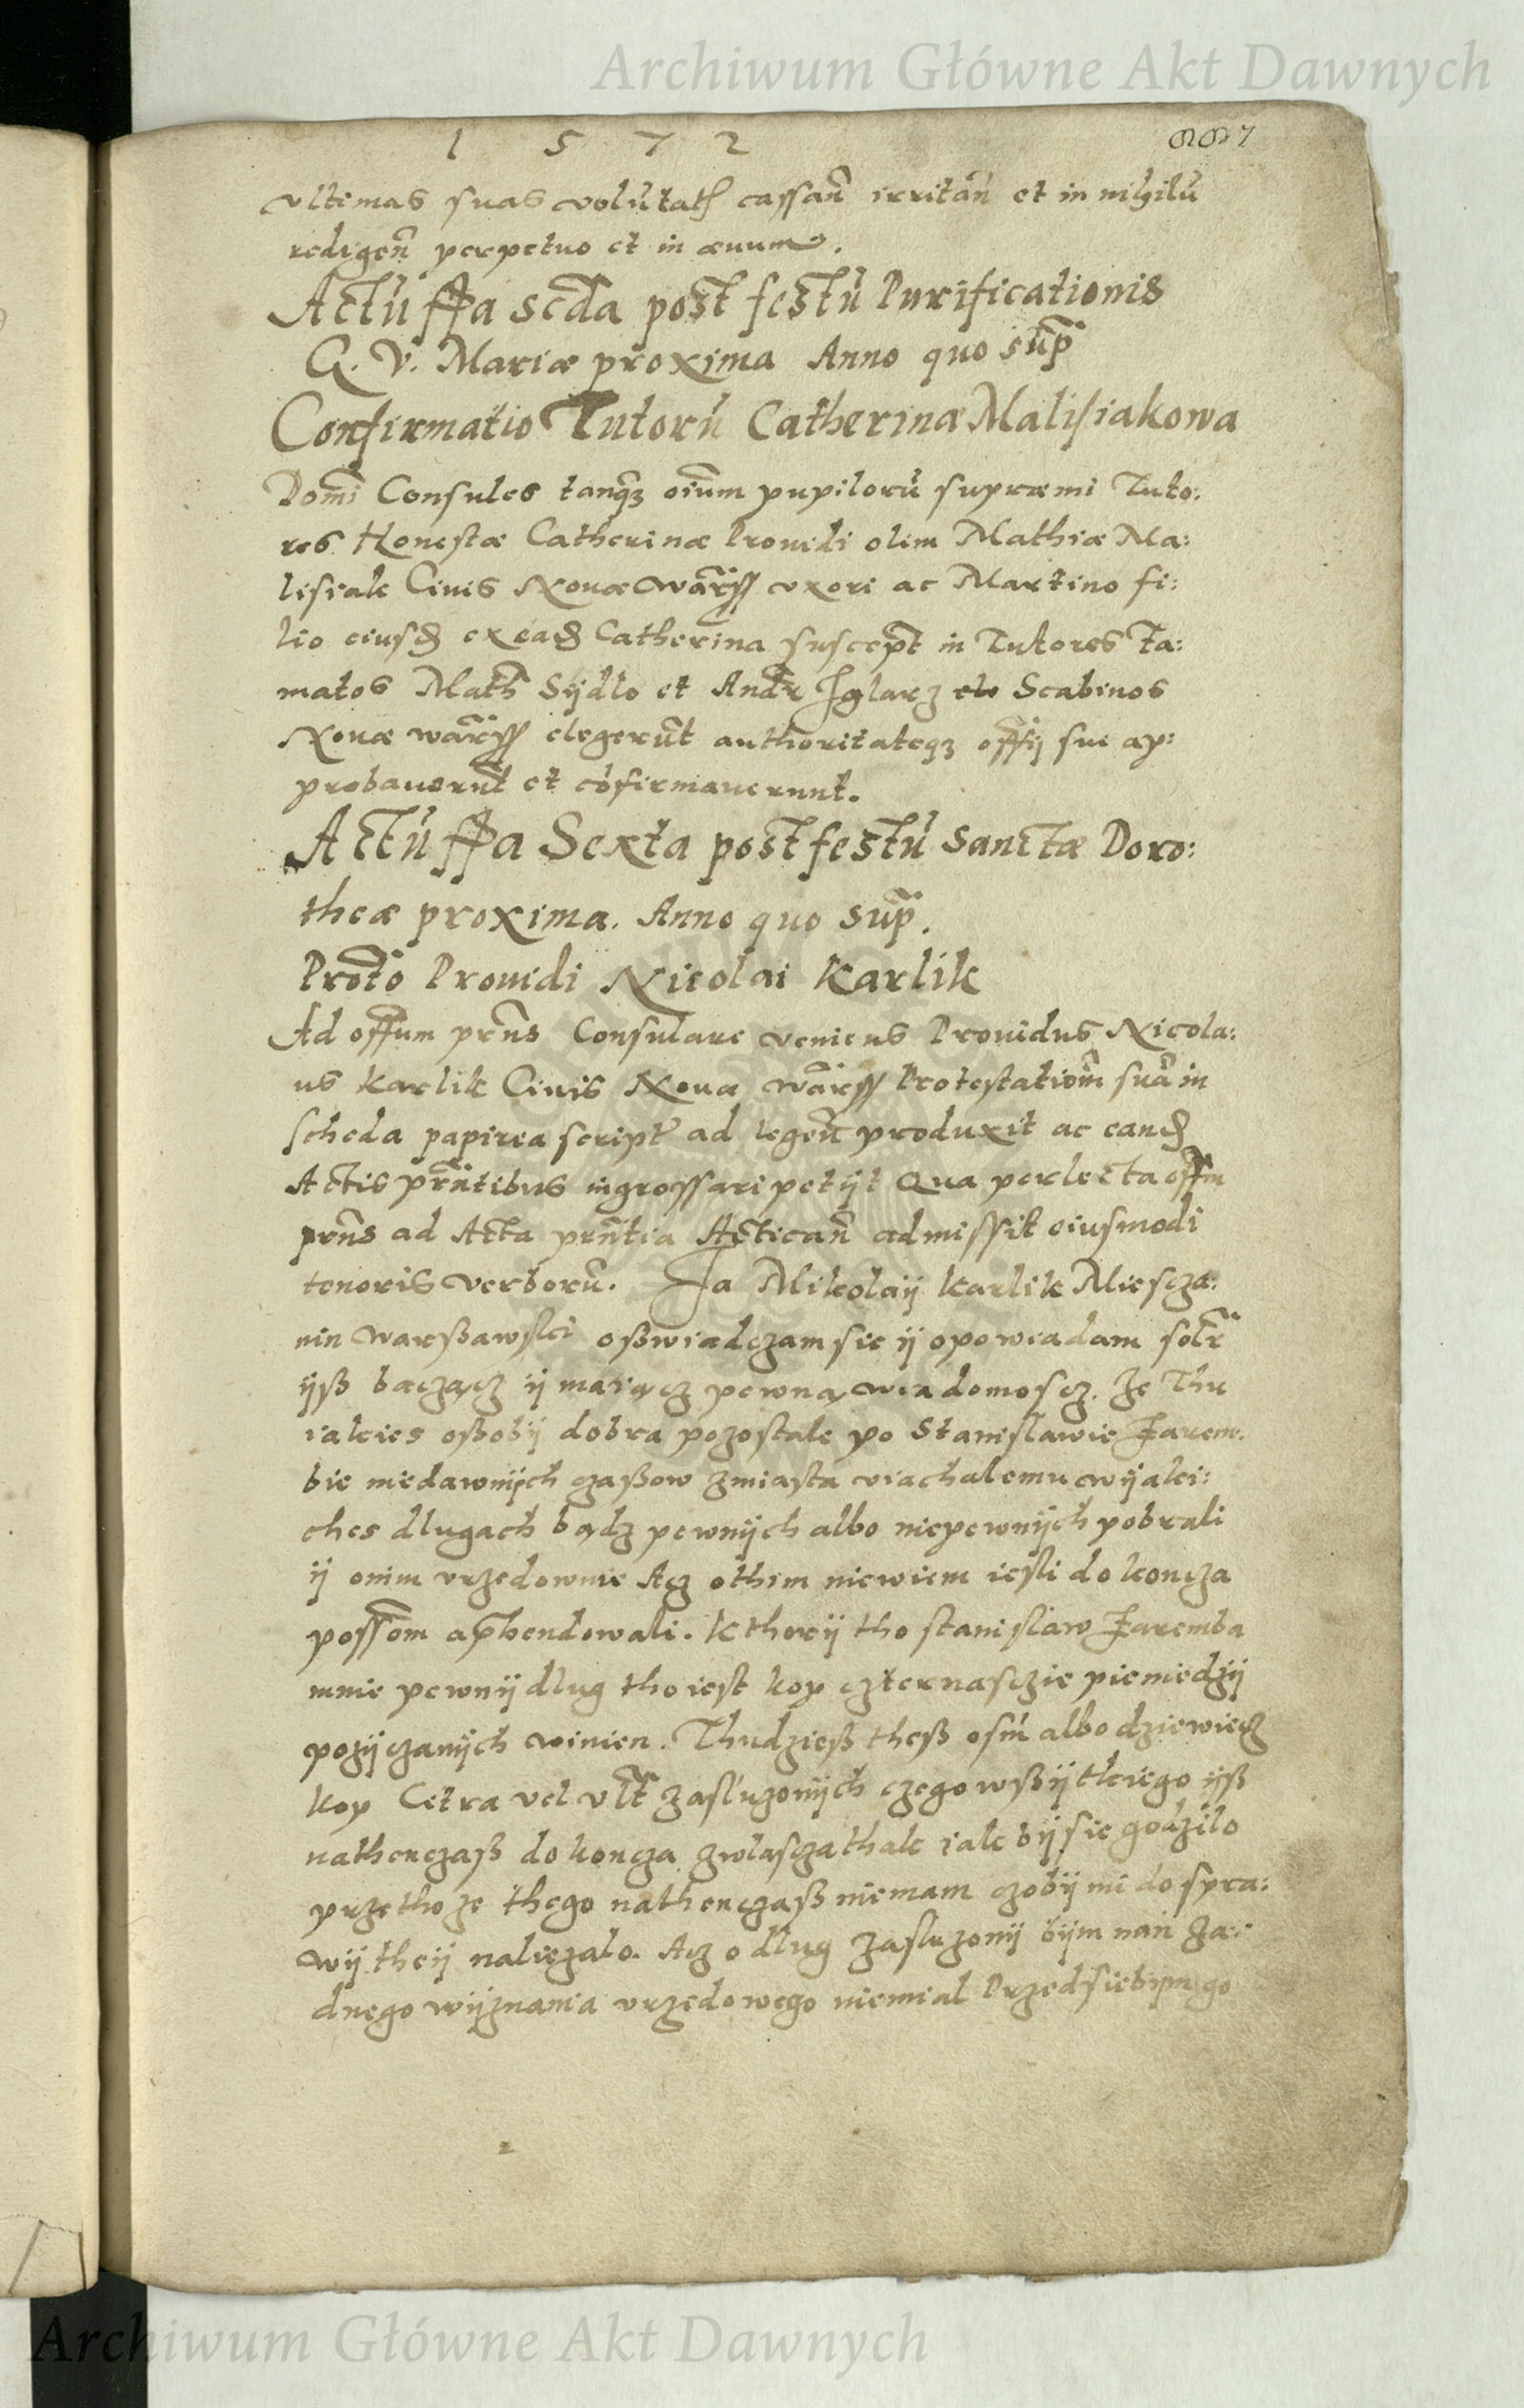 Archiwum Główne Akt Dawnych
1 5 7 2
vltimas suas volūtatꝭ cassañ irritañ et in nihilū
redigeñ perpetuo et in æuum.
Actū ffa scda post festū Purificationis
G. V. Mariæ proxima Anno quo sup̄
Confirmatio Tutorū Catherinæ Malisiakowa
Domi Consules tanqꝫ oium pupilorū supræmi Tuto:
res Honestæ Catherinæ Prouidi olim Mathiæ Ma:
lisiak Ciuis Nouæ Warss vxori ac Martino fi:
lio eiusd ex ead Catherina suscept in Tutores Ta:
matos Math Sydlo et Andr Iglarz Scabinos
Nouæ warss elegerūt authoritateqꝫ offij sui ap:
probauerūt et cōfirmauerunt.
Actū ffa Sexta post festū Sanctæ Doro:
theæ proxima. Anno quo sup̄.
Protō Prouidi Nicolai Karlik
Ad offum prns Consulare veniens Prouidus Nicola:
us Karlik Ciuis Nouæ warss Protestationm suā in
scheda papirea script ad legeñ produxit ac eand
Actis prntibus ingrossari petijt Qua perlecta offm
prns ad Acta prntia Acticañ admissit eiusmodi
tenoris verborū. Ja Mikolaij Karlik Miescza:
nin Warßawski oßwiadczam sie ij opowiadam soltr
ijß baczącz ij maiącz pewną wiadomoscz. że Thu
iakies oßobij dobra pozostale po Stanislawie Zarem:
bie niedawnijch czaßow zmiasta viachalemu wijaki:
ches dlugach bądz pewnijch albo niepewnijch pobrali
ij onim vrzedownie Acz othim niewiem iesli do koncza
possom aphendowali. Ktherij tho Stanislaw Zaremba
mnie pewnij dlug tho iest kop czternasczie pieniedzij
pozijczanijch winien. Thudzieß theß osm albo dziewiecz
kop Citra vel vlt zasluzonijch czego wßijtkiego ijß
nathenczaß do koncza zwlascza thak iak bij sie godzilo
przetho ze thego nathenczaß niemam czobij mi do spra:
wij theij naliezalo. Acz o dlug zasluzonij bijm nan za:
dnego wijznania vrzedowego niemial Przedsiebijm go
Archiwum Główne Akt Dawnych